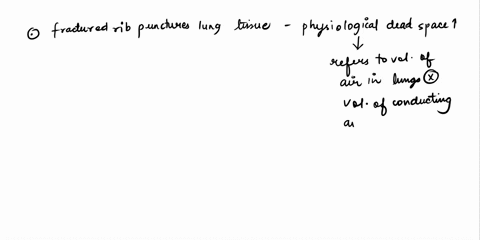 ⊙ fractured rib punctures lung tissue - physiological dead space ↑
↓
refers to vol. of
air in lungs ⓧ
vol. of conducting
a